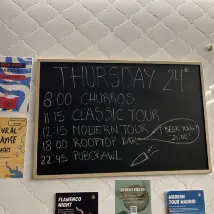 THURSDAY 24th
8:00 CHURROS
11:15 CLASSIC TOUR
12:15 MODERN TOUR
18:00 ROOFTOP BAR
22:45 PUBCRAWL
FLAMENCO
NIGHT
MODERN
TOUR MADRID